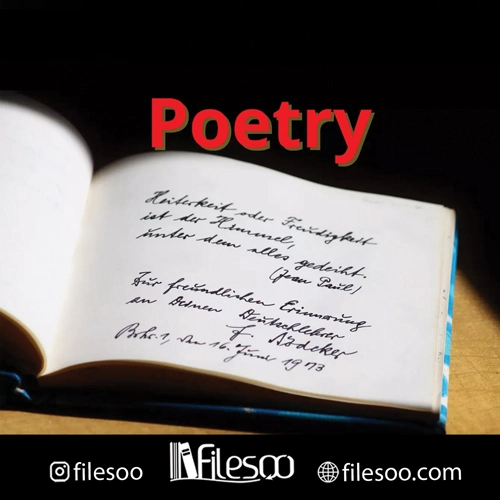 Poetry
Heiterkeit oder Freudigkeit
ist der Himmel,
unter dem alles gedeiht.
(Jean Paul)
Zur freundlichen Erinnerung
an Deinen Deutschlehrer
den 16. Juni 1973
filesoo
filesoo
filesoo.com